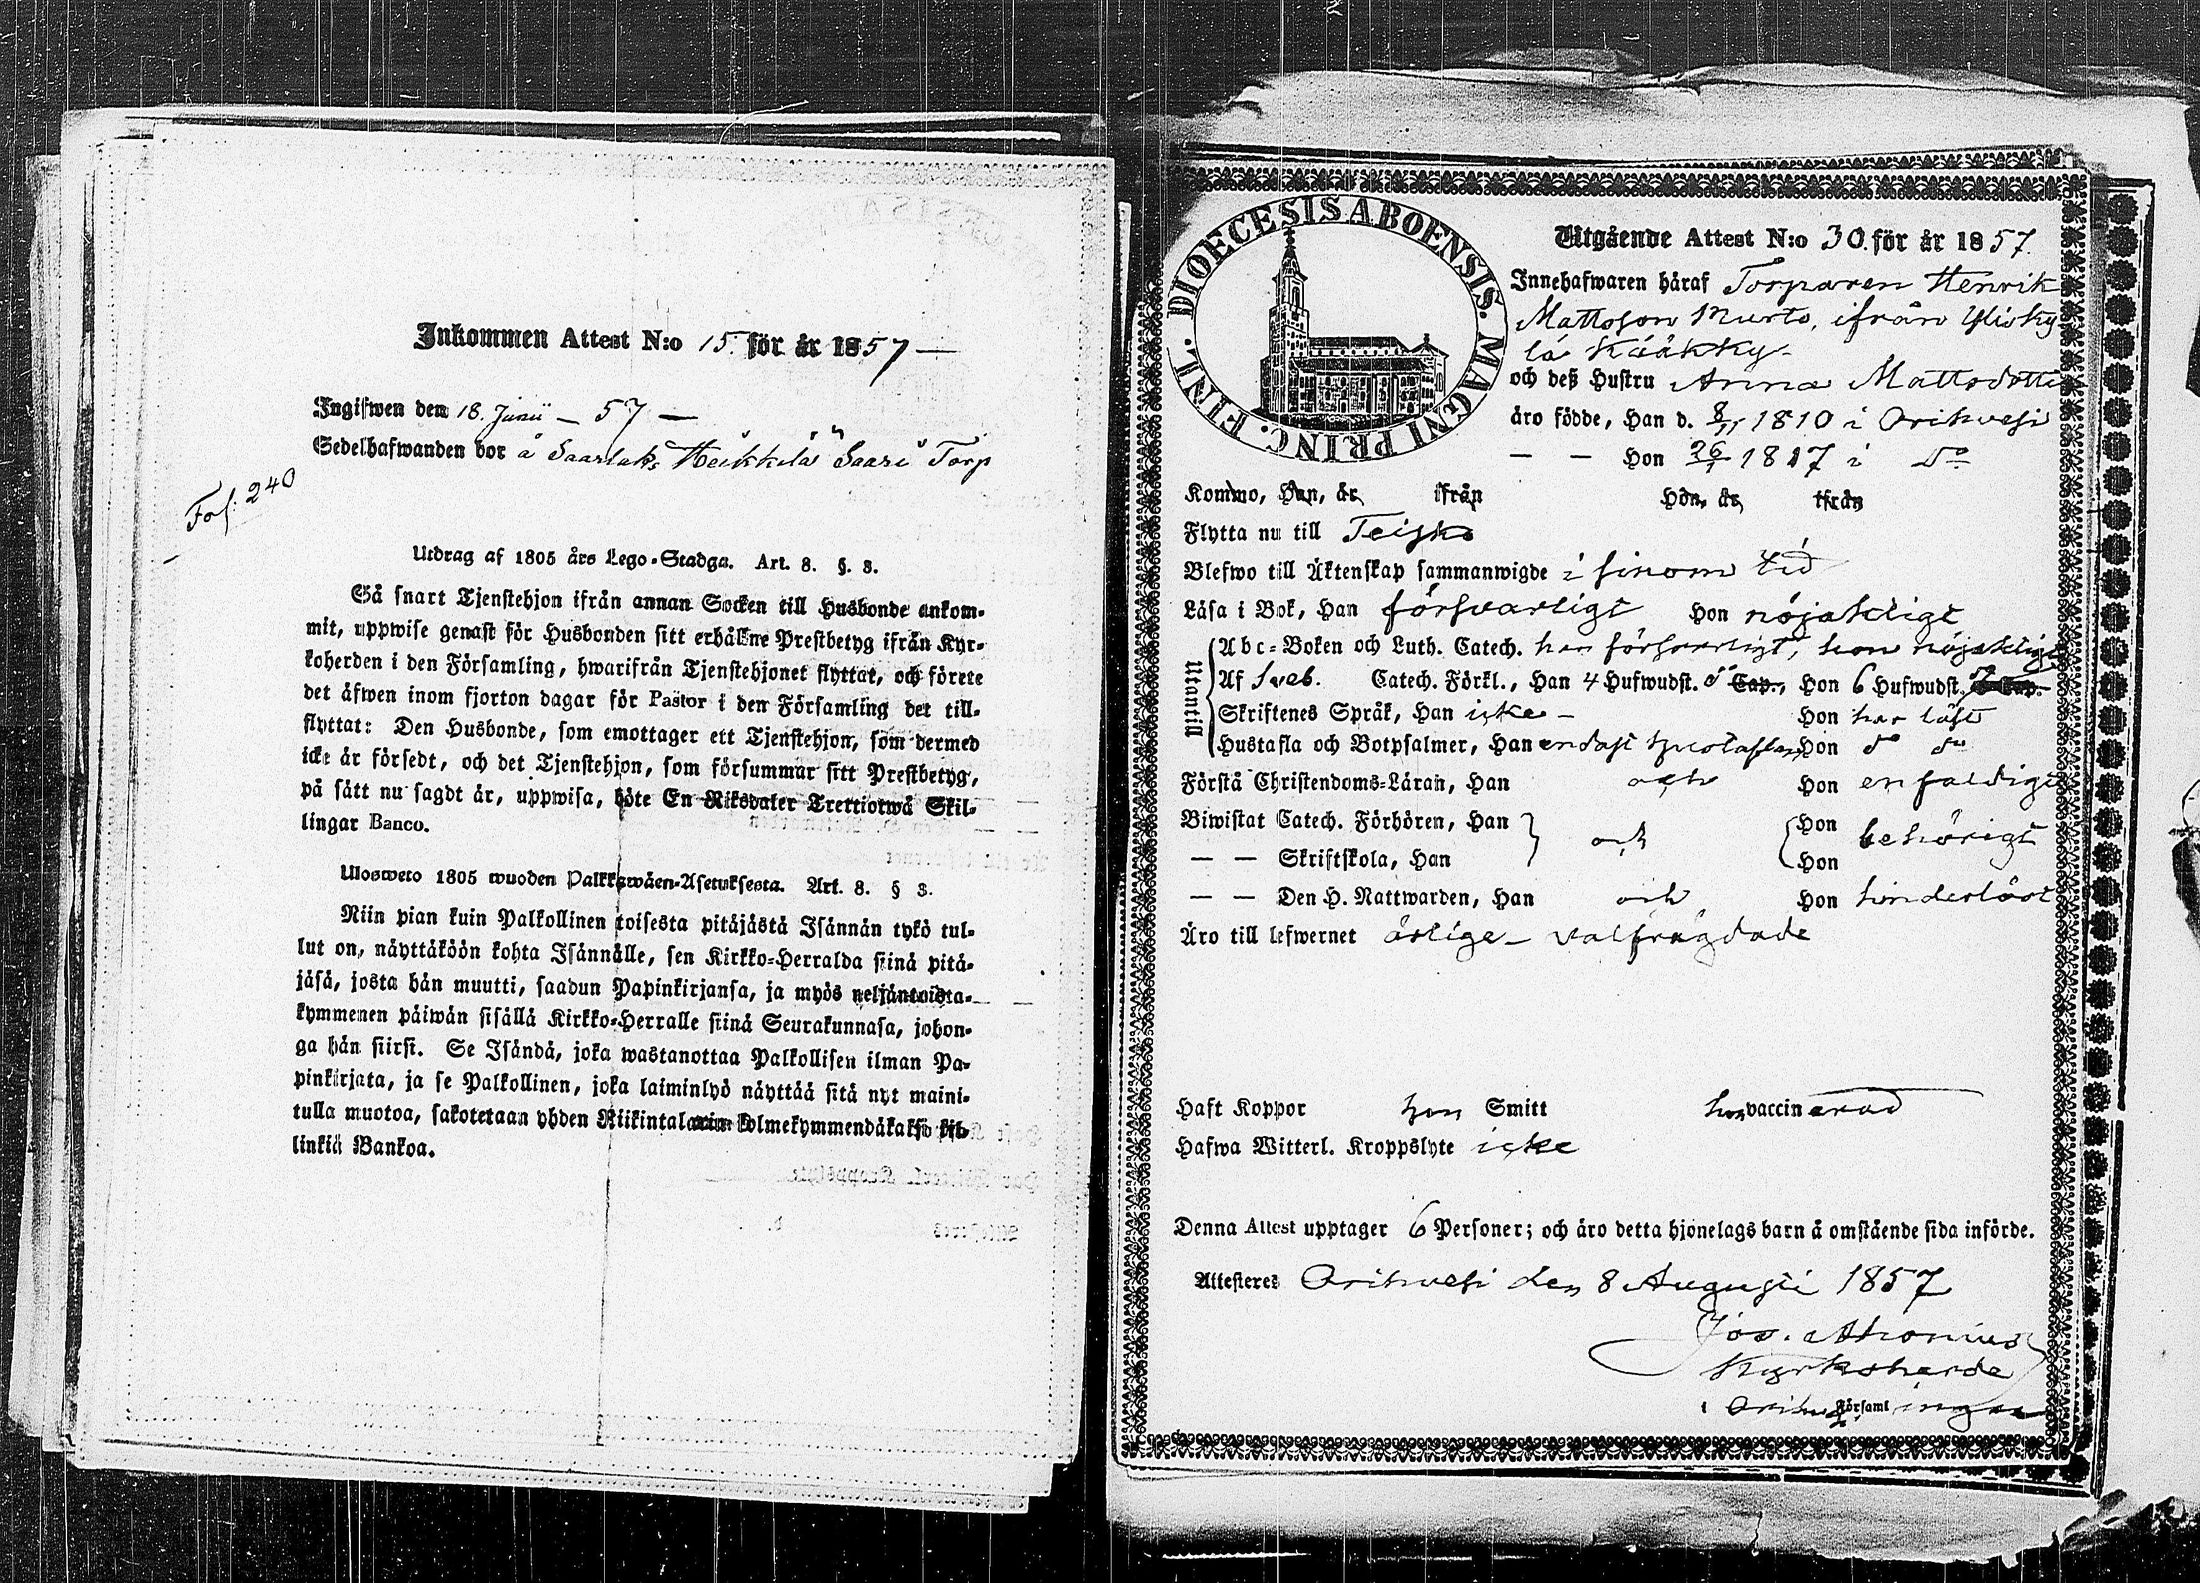 Inkommen Attest N:o 15. för år 1857 —
Ingifwen den 18. Junii – 57 —
Sedelhafwanden bor å Saarlaks Heikkilä Saari Torp
Fol: 240
Utdrag af 1805 års Lego-Stadga. Art. 8. §. 3.
Så snart Tjenstehjon ifrån annan Socken till Husbonde ankom-
mit, uppwise genast för Husbonden sitt erhållne Prestbetyg ifrån Kyr-
koherden i den Församling, hwarifrån Tjenstehjonet flyttat, och förete
det äfwen inom fjorton dagar för Pastor i den Församling det till-
flyttat: Den Husbonde, som emottager ett Tjenstehjon, som dermed
icke är försedt, och det Tjenstehjon, som försummar sitt Prestbetyg,
på sätt nu sagdt är, uppwisa, böte En Riksdaler Trettiotwå Skil-
lingar Banco.
Ulosweto 1805 wuoden Palkkawäen-Asetuksesta. Art. 8. § 3.
Niin pian kuin Palkollinen toisesta pitäjästä Isännän tykö tul-
lut on, näyttäköön kohta Isännälle, sen Kirkko-Herralda siinä pitä-
jäsä, josta hän muutti, saadun Papinkirjansa, ja myös neljäntoista-
kymmenen päiwän sisällä Kirkko-Herralle siinä Seurakunnasa, johon-
ga hän siirsi. Se Isändä, joka wastanottaa Palkollisen ilman Pa-
pinkirjata, ja se Palkollinen, joka laiminlyö näyttää sitä nyt maini-
tulla muotoa, sakotetaan yhden Riikintalarin kolmekymmendäkaksi kil-
linkiä Bankoa.
DIOECESIS ABOENSIS. MAGNI PRINC. FINL.
Utgående Attest N:o 30. för år 1857.
Innehafwaren häraf Torparen Henrik
Mattsson Murto, ifrån Ylisky
lä Kääkky
och deß Hustru Anna Mattsdotter
äro födde, Han d. 8/11 1810 i Orihvesi
— — Hon 26/1 1817 i do
Komwo, Han, är ifrån Hon, är ifrån
Flytta nu till Teisko
Blefwo till Äktenskap sammanwigde i sinom tid
Läsa i Bok, Han försvarligt Hon nöjaktligt
Utantill
Abc-Boken och Luth. Catech. han försvarligt, hon nöjaktligt
Af Sveb. Catech. Förkl., Han 4 Hufwudst. Cap., Hon 6 Hufwudst.
Skriftenes Språk, Han icke – Hon har läst
Hustafla och Botpsalmer, Han endast hustaflan, Hon do do
Förstå Christendoms-Läran, Han och Hon enfaldigt
Biwistat Catech. Förhören, Han och Hon behörigt
— — Skriftskola, Han Hon
— — Den H. Nattwarden, Han och Hon hinderlöst
Äro till lefwernet ärlige – välfrägdade
Haft Koppor han Smitt hon vaccinerad
Hafwa Witterl. Kroppslyte icke
Denna Attest upptager 6 Personer; och äro detta hjonelags barn å omstående sida införde.
Attesteres Orihvesi den 8 Augusti 1857
Jos. Ahonius
Kyrkoherde
i Församl